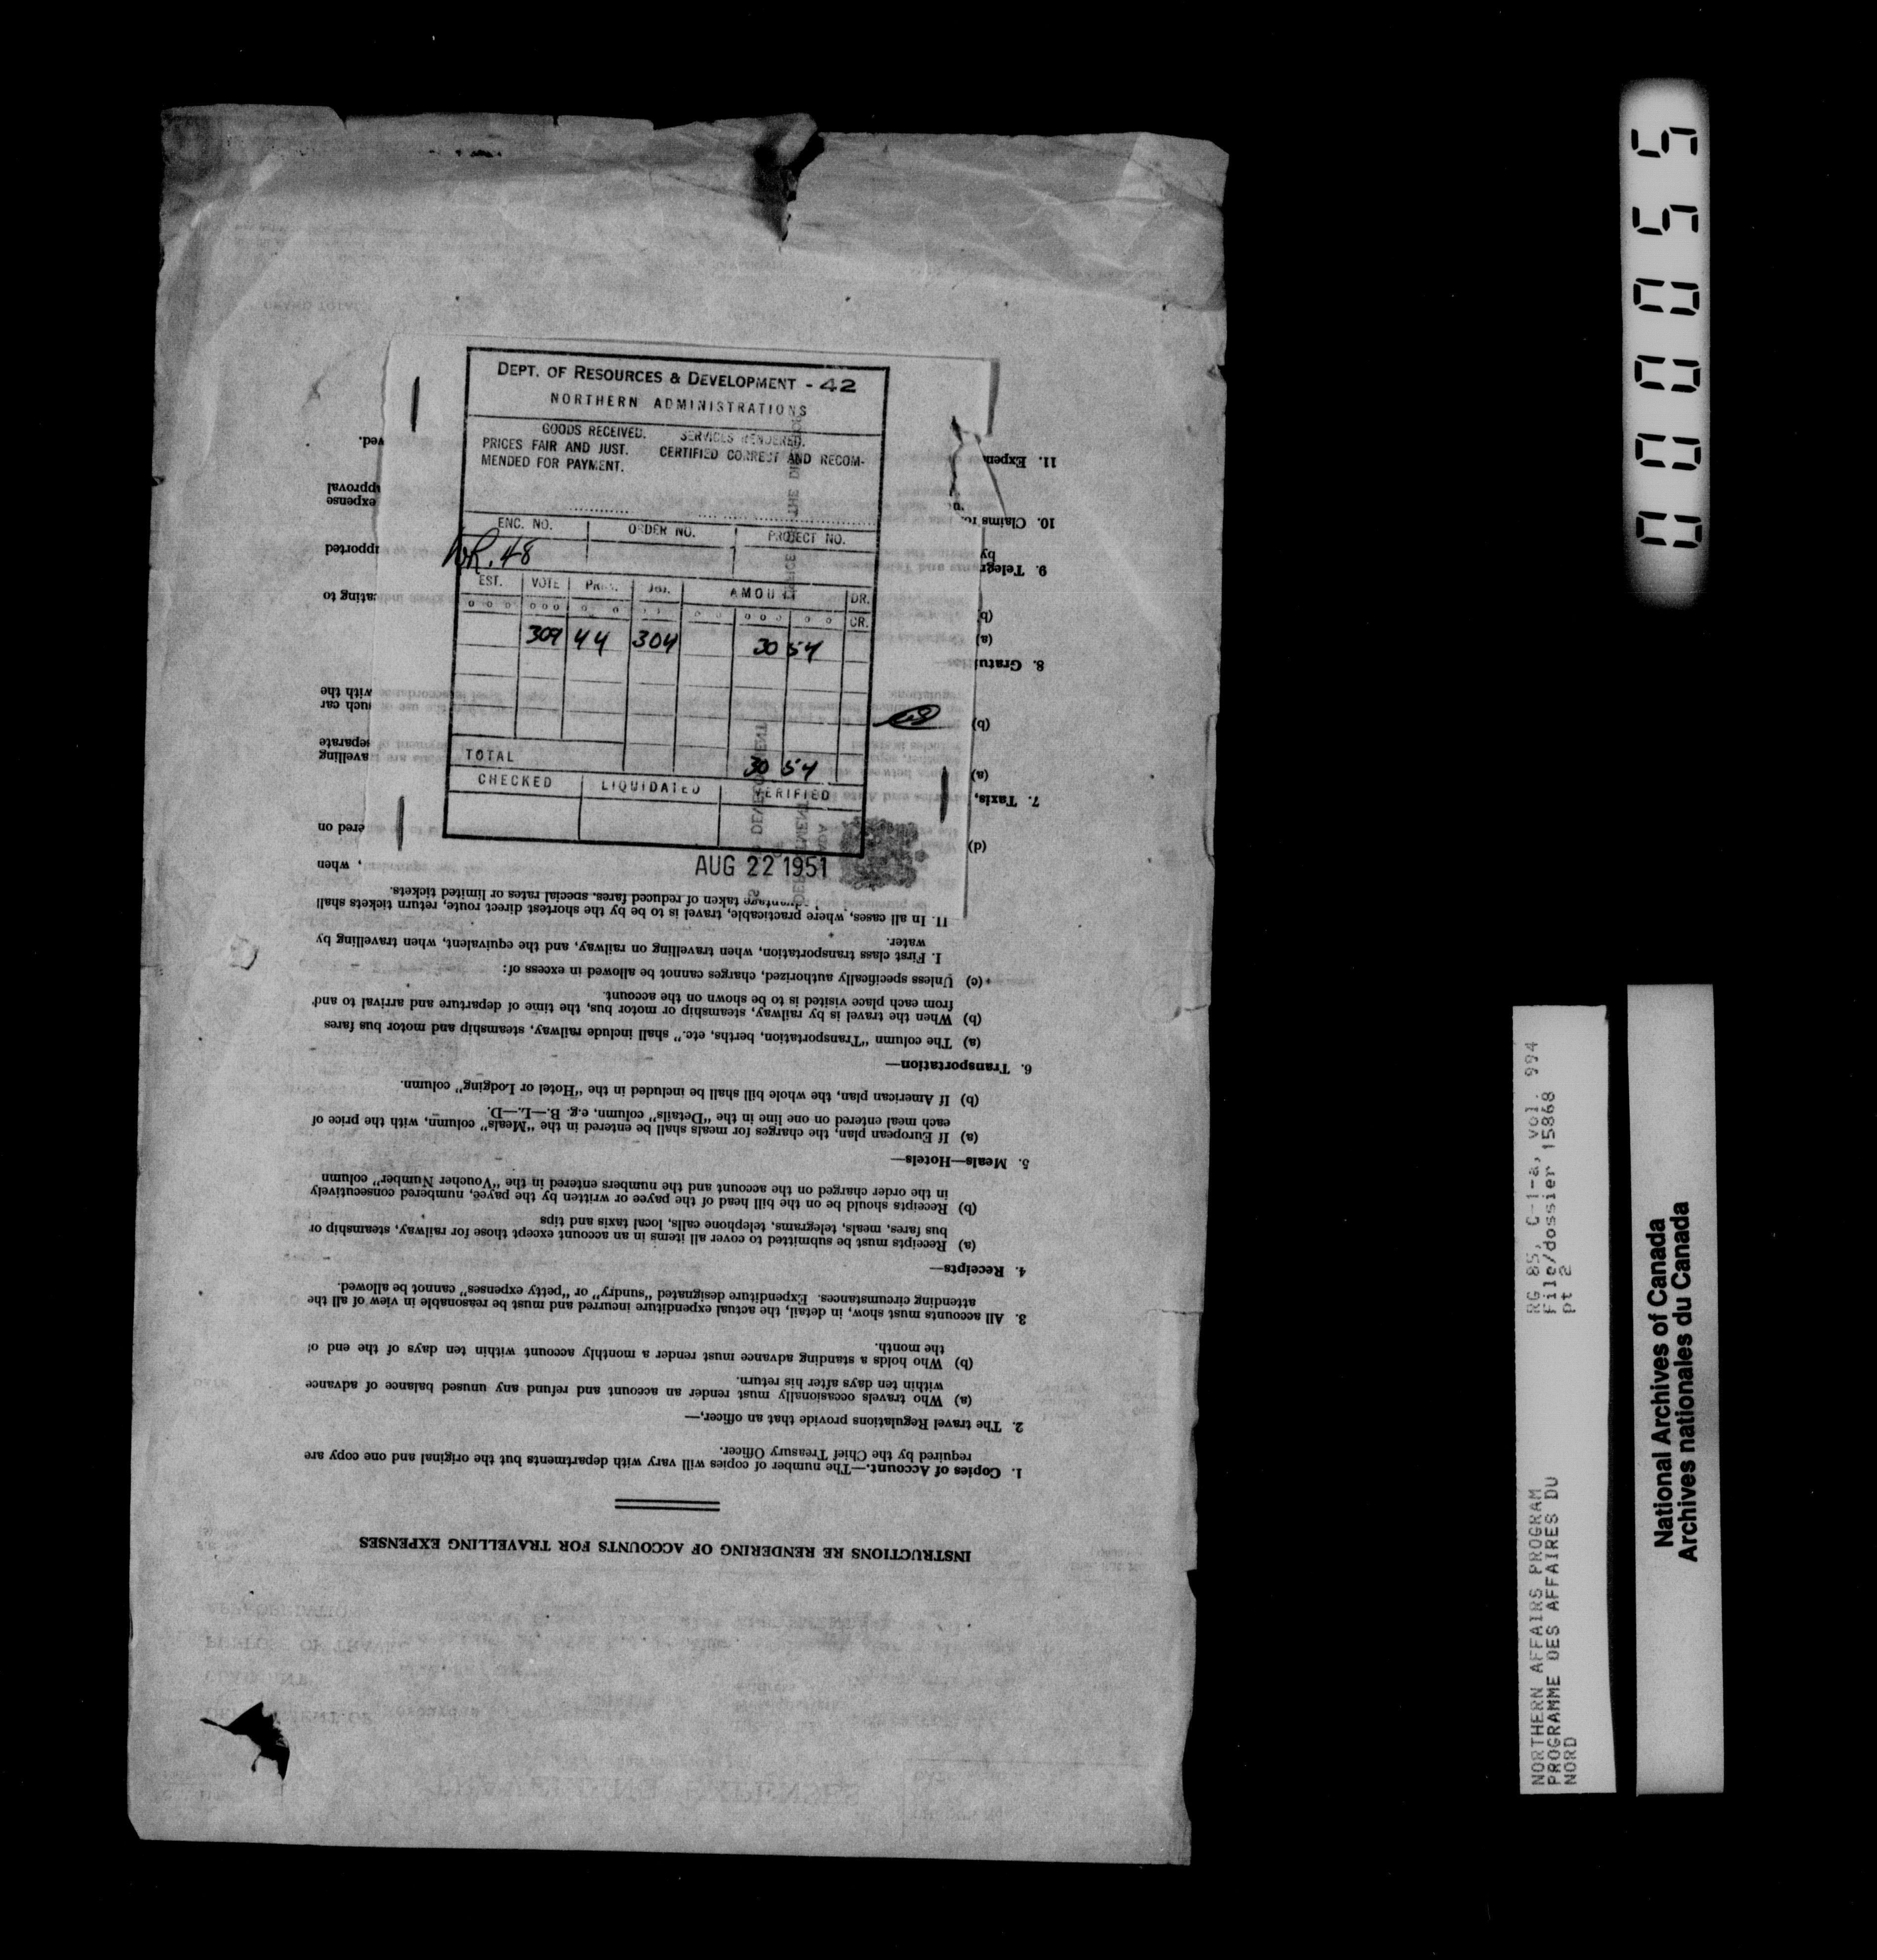 DEPT. OF RESOURCES & DEVELOPMENT - 42
NORTHERN ADMINISTRATIONS
GOODS RECEIVED. SERVICES RENDERED.
PRICES FAIR AND JUST. CERTIFIED CORRECT AND RECOM-
MENDED FOR PAYMENT.
ENC. NO. ORDER NO. PROJECT NO.
48
EST. VOTE AMOUNT DR.
CR.
309 44 304 30 54
TOTAL 30 54
CHECKED LIQUIDATED VERIFIED
AUG 22 1951
INSTRUCTIONS RE RENDERING OF ACCOUNTS FOR TRAVELLING EXPENSES
1. Copies of Account.—The number of copies will vary with departments but the original and one copy are
required by the Chief Treasury Officer.
2. The travel Regulations provide that an officer,—
(a) Who travels occasionally must render an account and refund any unused balance of advance
within ten days after his return.
(b) Who holds a standing advance must render a monthly account within ten days of the end of
the month.
3. All accounts must show, in detail, the actual expenditure incurred and must be reasonable in view of all the
attending circumstances. Expenditure designated "sundry" or "petty expenses" cannot be allowed.
4. Receipts—
(a) Receipts must be submitted to cover all items in an account except those for railway, steamship or
bus fares, meals, telegrams, telephone calls, local taxis and tips
(b) Receipts should be on the bill head of the payee or written by the payee, numbered consecutively
in the order charged on the account and the numbers entered in the "Voucher Number" column
5. Meals—Hotels—
(a) If European plan, the charges for meals shall be entered in the "Meals" column, with the price of
each meal entered on one line in the "Details" column, e.g. B.—L.—D.
(b) If American plan, the whole bill shall be included in the "Hotel or Lodging" column.
6. Transportation—
(a) The column "Transportation, berths, etc." shall include railway, steamship and motor bus fares
(b) When the travel is by railway, steamship or motor bus, the time of departure and arrival to and
from each place visited is to be shown on the account.
(c) Unless specifically authorized, charges cannot be allowed in excess of:
I. First class transportation, when travelling on railway, and the equivalent, when travelling by
water.
II. In all cases, where practicable, travel is to be by the shortest direct route, return tickets shall
taken of reduced fares, special rates or limited tickets.
, when
(d) ered on
7. Taxis,
(a) avelling
separate
(b) uch car
with the
8. Gratu
(a)
(b) ating to
9. Telegr
by pported
10. Claims expense
approval
11. Expen ved.
000055
RG 85, C-1-a, vol. 994
File/dossier 15868
pt 2
NORTHERN AFFAIRS PROGRAM
PROGRAMME DES AFFAIRES DU
NORD
National Archives of Canada
Archives nationales du Canada